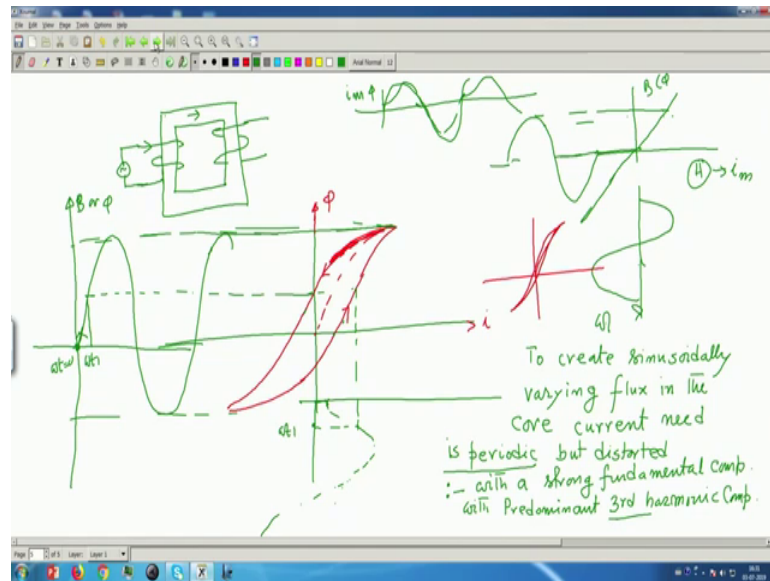 Xournal
File Edit View Page Tools Options Help
Arial Normal 12
im φ
B (φ
H → im
B or φ
φ
i
ωt1
ωt1
ωt
To create sinusoidally
varying flux in the
core current need
is periodic but distorted
:- with a strong fundamental comp.
with Predominant 3rd harmonic Comp.
Page 5 of 5 Layer: Layer 1